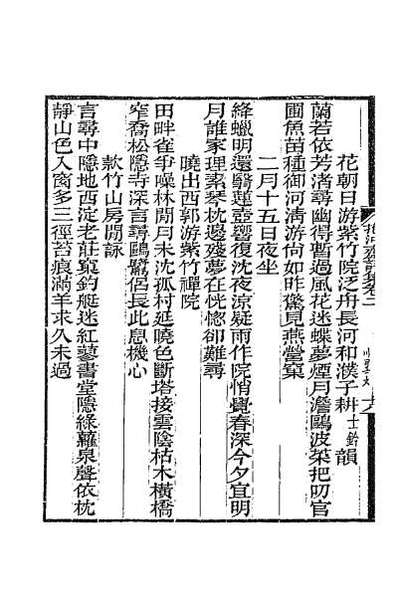 花朝日游紫竹院泛舟長河和濮子耕士鈐韻
蘭若依芳渚尋幽得暫過風花迷蝶夢煙月澹鷗波菜把叨官
圃魚苗種御河清游尚如昨驚見燕營窠
二月十五日夜坐
絳蠟明還翳蓮壺響復沈夜涼疑雨作院悄覺春深今夕宜明
月誰家理素琴枕邊殘夢在恍惚卻難尋
曉出西郭游紫竹禪院
田畔雀爭噪林閒月未沈孤村延曉色斷塔接雲陰枯木橫橋
窄喬松隱寺深言尋鷗鷺侶長此息機心
款竹山房閒詠
言尋中隱地西淀老莊窠釣艇迷紅蓼書堂隱綠蘿泉聲依枕
靜山色入窗多三徑苔痕滿羊求久未過